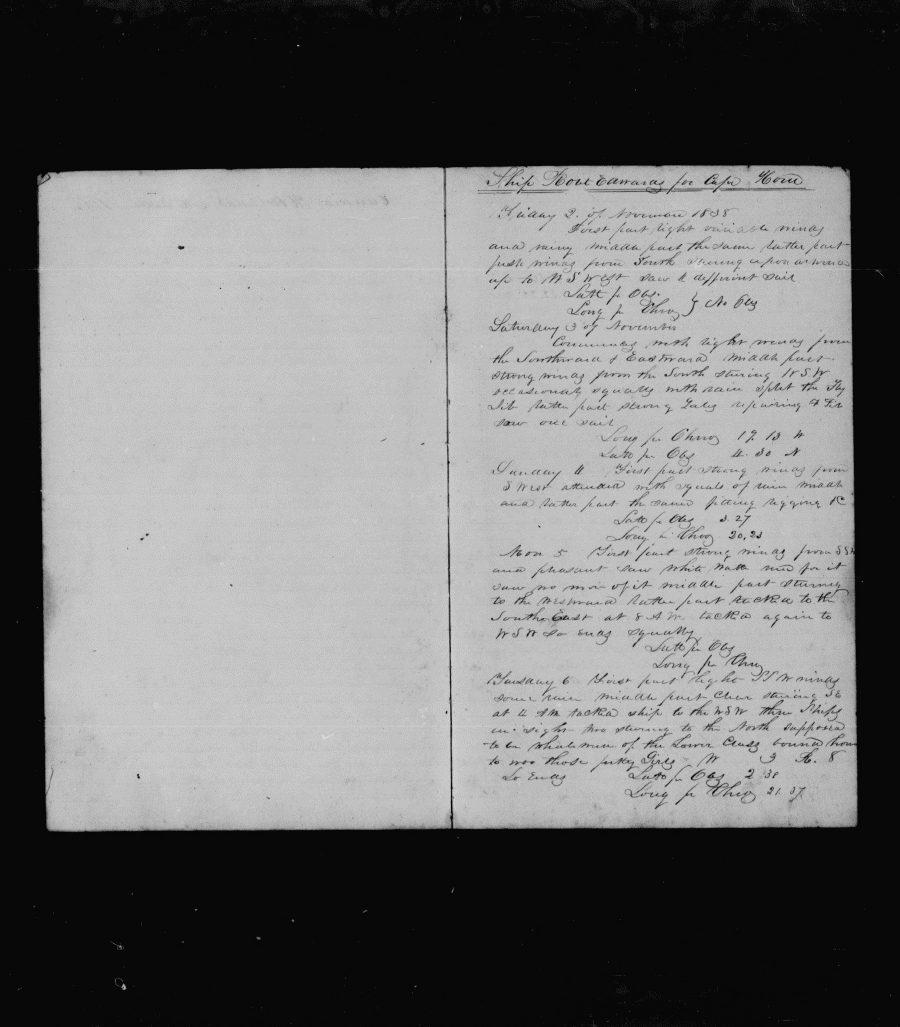 Ship Robt Edwards for Cape Horn
Friday 2. of November 1838
First part light variable winds
and rainy middle part the same latter part
fresh winds from South steering upon a wind
up to W S West saw 2 different sail
Latt pr Obs
Long pr Chro } No Obs
Saturday 3 of November
Commences with light winds from
the Southward & Eastward middle part
strong winds from the South stering W S W
occasionaly squalls with rain split the Fly
Jib latter part strong Gales repairing F Jib
saw one sail
Long pr Chro 19 13 W
Latt pr Obs 4. 30 N
Sunday 4 First part strong winds from
S West attended with squals of rain middle
and latter part the same fitting rigging &C
Latt pr Obs 3. 27
Long pr Chro 20, 23
Mon 5 First part strong winds from S S W
and pleasant saw White Watter run for it
saw no more of it middle part stering
to the Westward latter part tacked to the
South East at 8 A.M. tacked again to
W S W so ends squally
Latt pr Obs
Long pr Chro
Tuesday 6 First part light S S W winds
some rain middle part clear stering S E
at 4 AM tacked ship to the W S W three Ships
in sight two stering to the North supposed
to be whalemen of the Lower Class bound home
to woo those pesky Girls W 3 R. 8
So Ends Latt pr Obs 2 38
Long pr Chro 21. 37